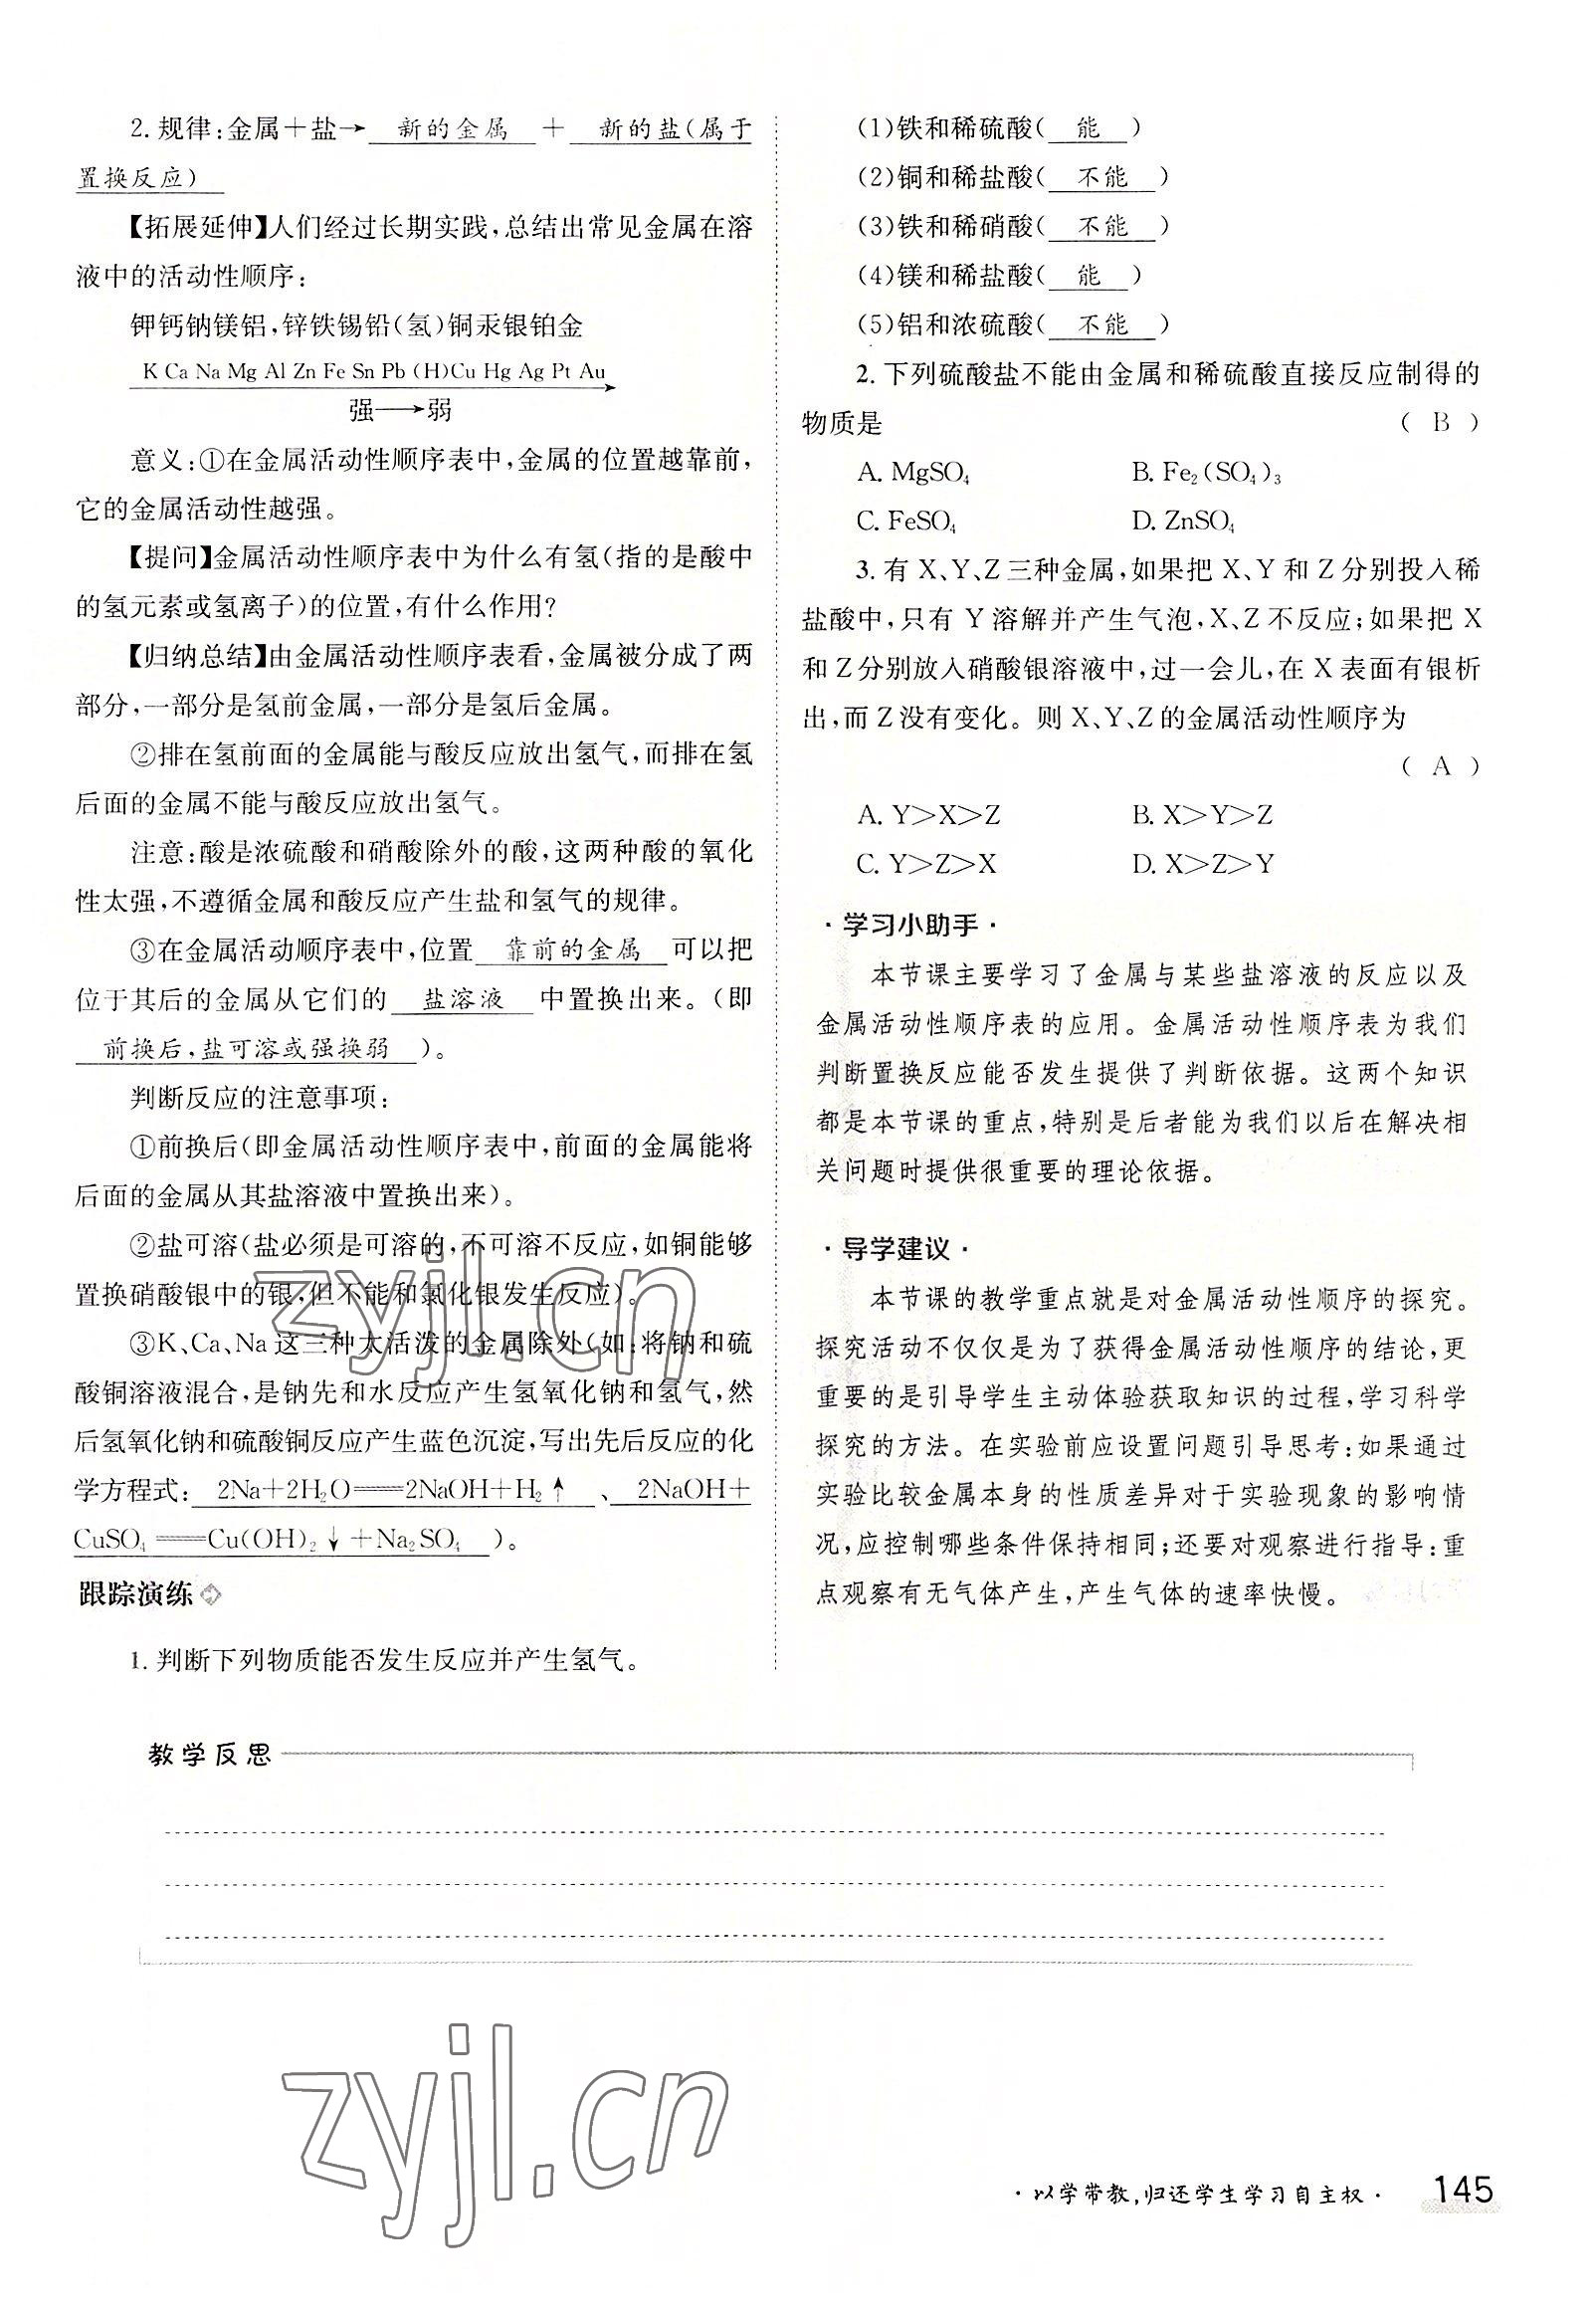 2. 规律:金属＋盐→ 新的金属 ＋ 新的盐(属于
置换反应)
【拓展延伸】人们经过长期实践,总结出常见金属在溶
液中的活动性顺序:
钾钙钠镁铝,锌铁锡铅(氢)铜汞银铂金
K Ca Na Mg Al Zn Fe Sn Pb (H)Cu Hg Ag Pt Au
强→弱
意义:①在金属活动性顺序表中,金属的位置越靠前,
它的金属活动性越强。
【提问】金属活动性顺序表中为什么有氢(指的是酸中
的氢元素或氢离子)的位置,有什么作用?
【归纳总结】由金属活动性顺序表看,金属被分成了两
部分,一部分是氢前金属,一部分是氢后金属。
②排在氢前面的金属能与酸反应放出氢气,而排在氢
后面的金属不能与酸反应放出氢气。
注意:酸是浓硫酸和硝酸除外的酸,这两种酸的氧化
性太强,不遵循金属和酸反应产生盐和氢气的规律。
③在金属活动顺序表中,位置 靠前的金属 可以把
位于其后的金属从它们的 盐溶液 中置换出来。(即
前换后,盐可溶或强换弱 )。
判断反应的注意事项:
①前换后(即金属活动性顺序表中,前面的金属能将
后面的金属从其盐溶液中置换出来)。
②盐可溶(盐必须是可溶的,不可溶不反应,如铜能够
置换硝酸银中的银,但不能和氯化银发生反应)。
③K、Ca、Na 这三种太活泼的金属除外(如:将钠和硫
酸铜溶液混合,是钠先和水反应产生氢氧化钠和氢气,然
后氢氧化钠和硫酸铜反应产生蓝色沉淀,写出先后反应的化
学方程式: 2Na＋2H₂O══2NaOH＋H₂↑ 、 2NaOH＋
CuSO₄══Cu(OH)₂↓＋Na₂SO₄ )。
跟踪演练
1. 判断下列物质能否发生反应并产生氢气。
(1)铁和稀硫酸( 能 )
(2)铜和稀盐酸( 不能 )
(3)铁和稀硝酸( 不能 )
(4)镁和稀盐酸( 能 )
(5)铝和浓硫酸( 不能 )
2. 下列硫酸盐不能由金属和稀硫酸直接反应制得的
物质是 ( B )
A. MgSO₄ B. Fe₂(SO₄)₃
C. FeSO₄ D. ZnSO₄
3. 有 X、Y、Z 三种金属,如果把 X、Y 和 Z 分别投入稀
盐酸中,只有 Y 溶解并产生气泡,X、Z 不反应;如果把 X
和 Z 分别放入硝酸银溶液中,过一会儿,在 X 表面有银析
出,而 Z 没有变化。则 X、Y、Z 的金属活动性顺序为
( A )
A. Y＞X＞Z B. X＞Y＞Z
C. Y＞Z＞X D. X＞Z＞Y
·学习小助手·
本节课主要学习了金属与某些盐溶液的反应以及
金属活动性顺序表的应用。金属活动性顺序表为我们
判断置换反应能否发生提供了判断依据。这两个知识
都是本节课的重点,特别是后者能为我们以后在解决相
关问题时提供很重要的理论依据。
·导学建议·
本节课的教学重点就是对金属活动性顺序的探究。
探究活动不仅仅是为了获得金属活动性顺序的结论,更
重要的是引导学生主动体验获取知识的过程,学习科学
探究的方法。在实验前应设置问题引导思考:如果通过
实验比较金属本身的性质差异对于实验现象的影响情
况,应控制哪些条件保持相同;还要对观察进行指导:重
点观察有无气体产生,产生气体的速率快慢。
教学反思
zyjl.cn
zyjl.cn
·以学带教,归还学生学习自主权· 145